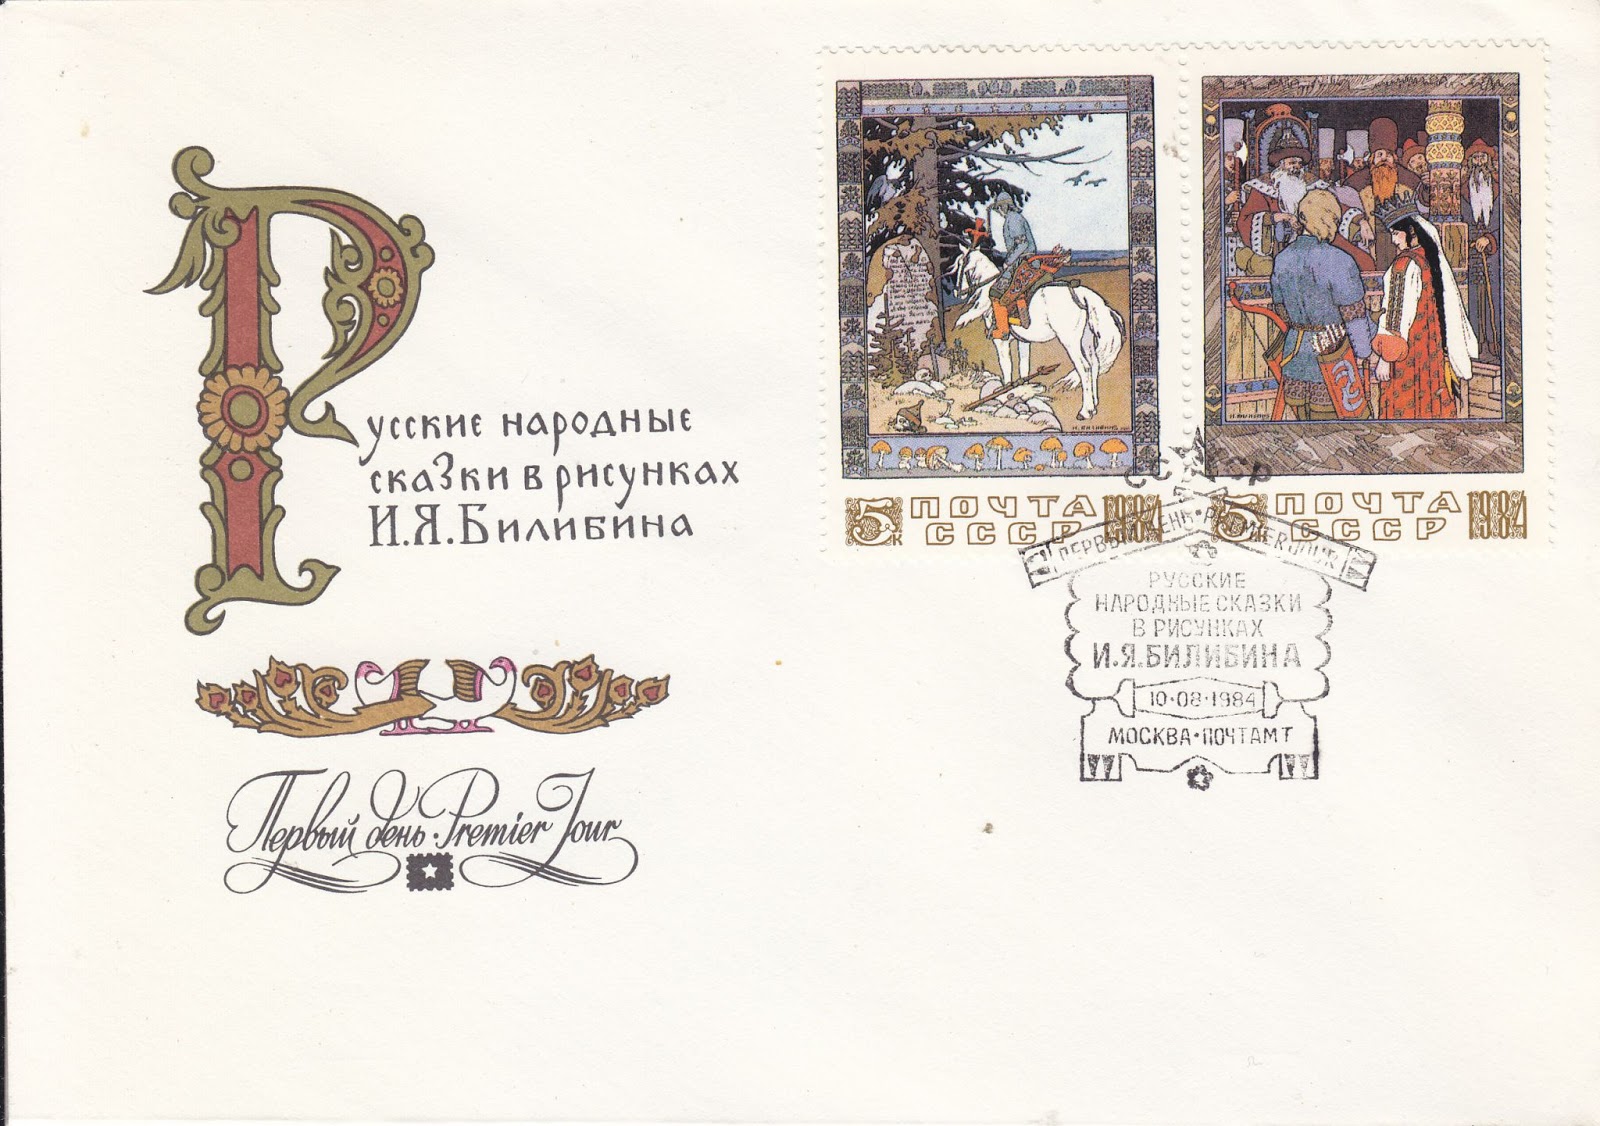 Русские народные
сказки в рисунках
И.Я.Билибина
Первый день · Premier Jour
5к ПОЧТА СССР 1984
5к ПОЧТА СССР 1984
И. БИЛИБИН
СССР
ПЕРВЫЙ ДЕНЬ · PREMIER JOUR
РУССКИЕ
НАРОДНЫЕ СКАЗКИ
В РИСУНКАХ
И.Я.БИЛИБИНА
10·08·1984
МОСКВА·ПОЧТАМТ